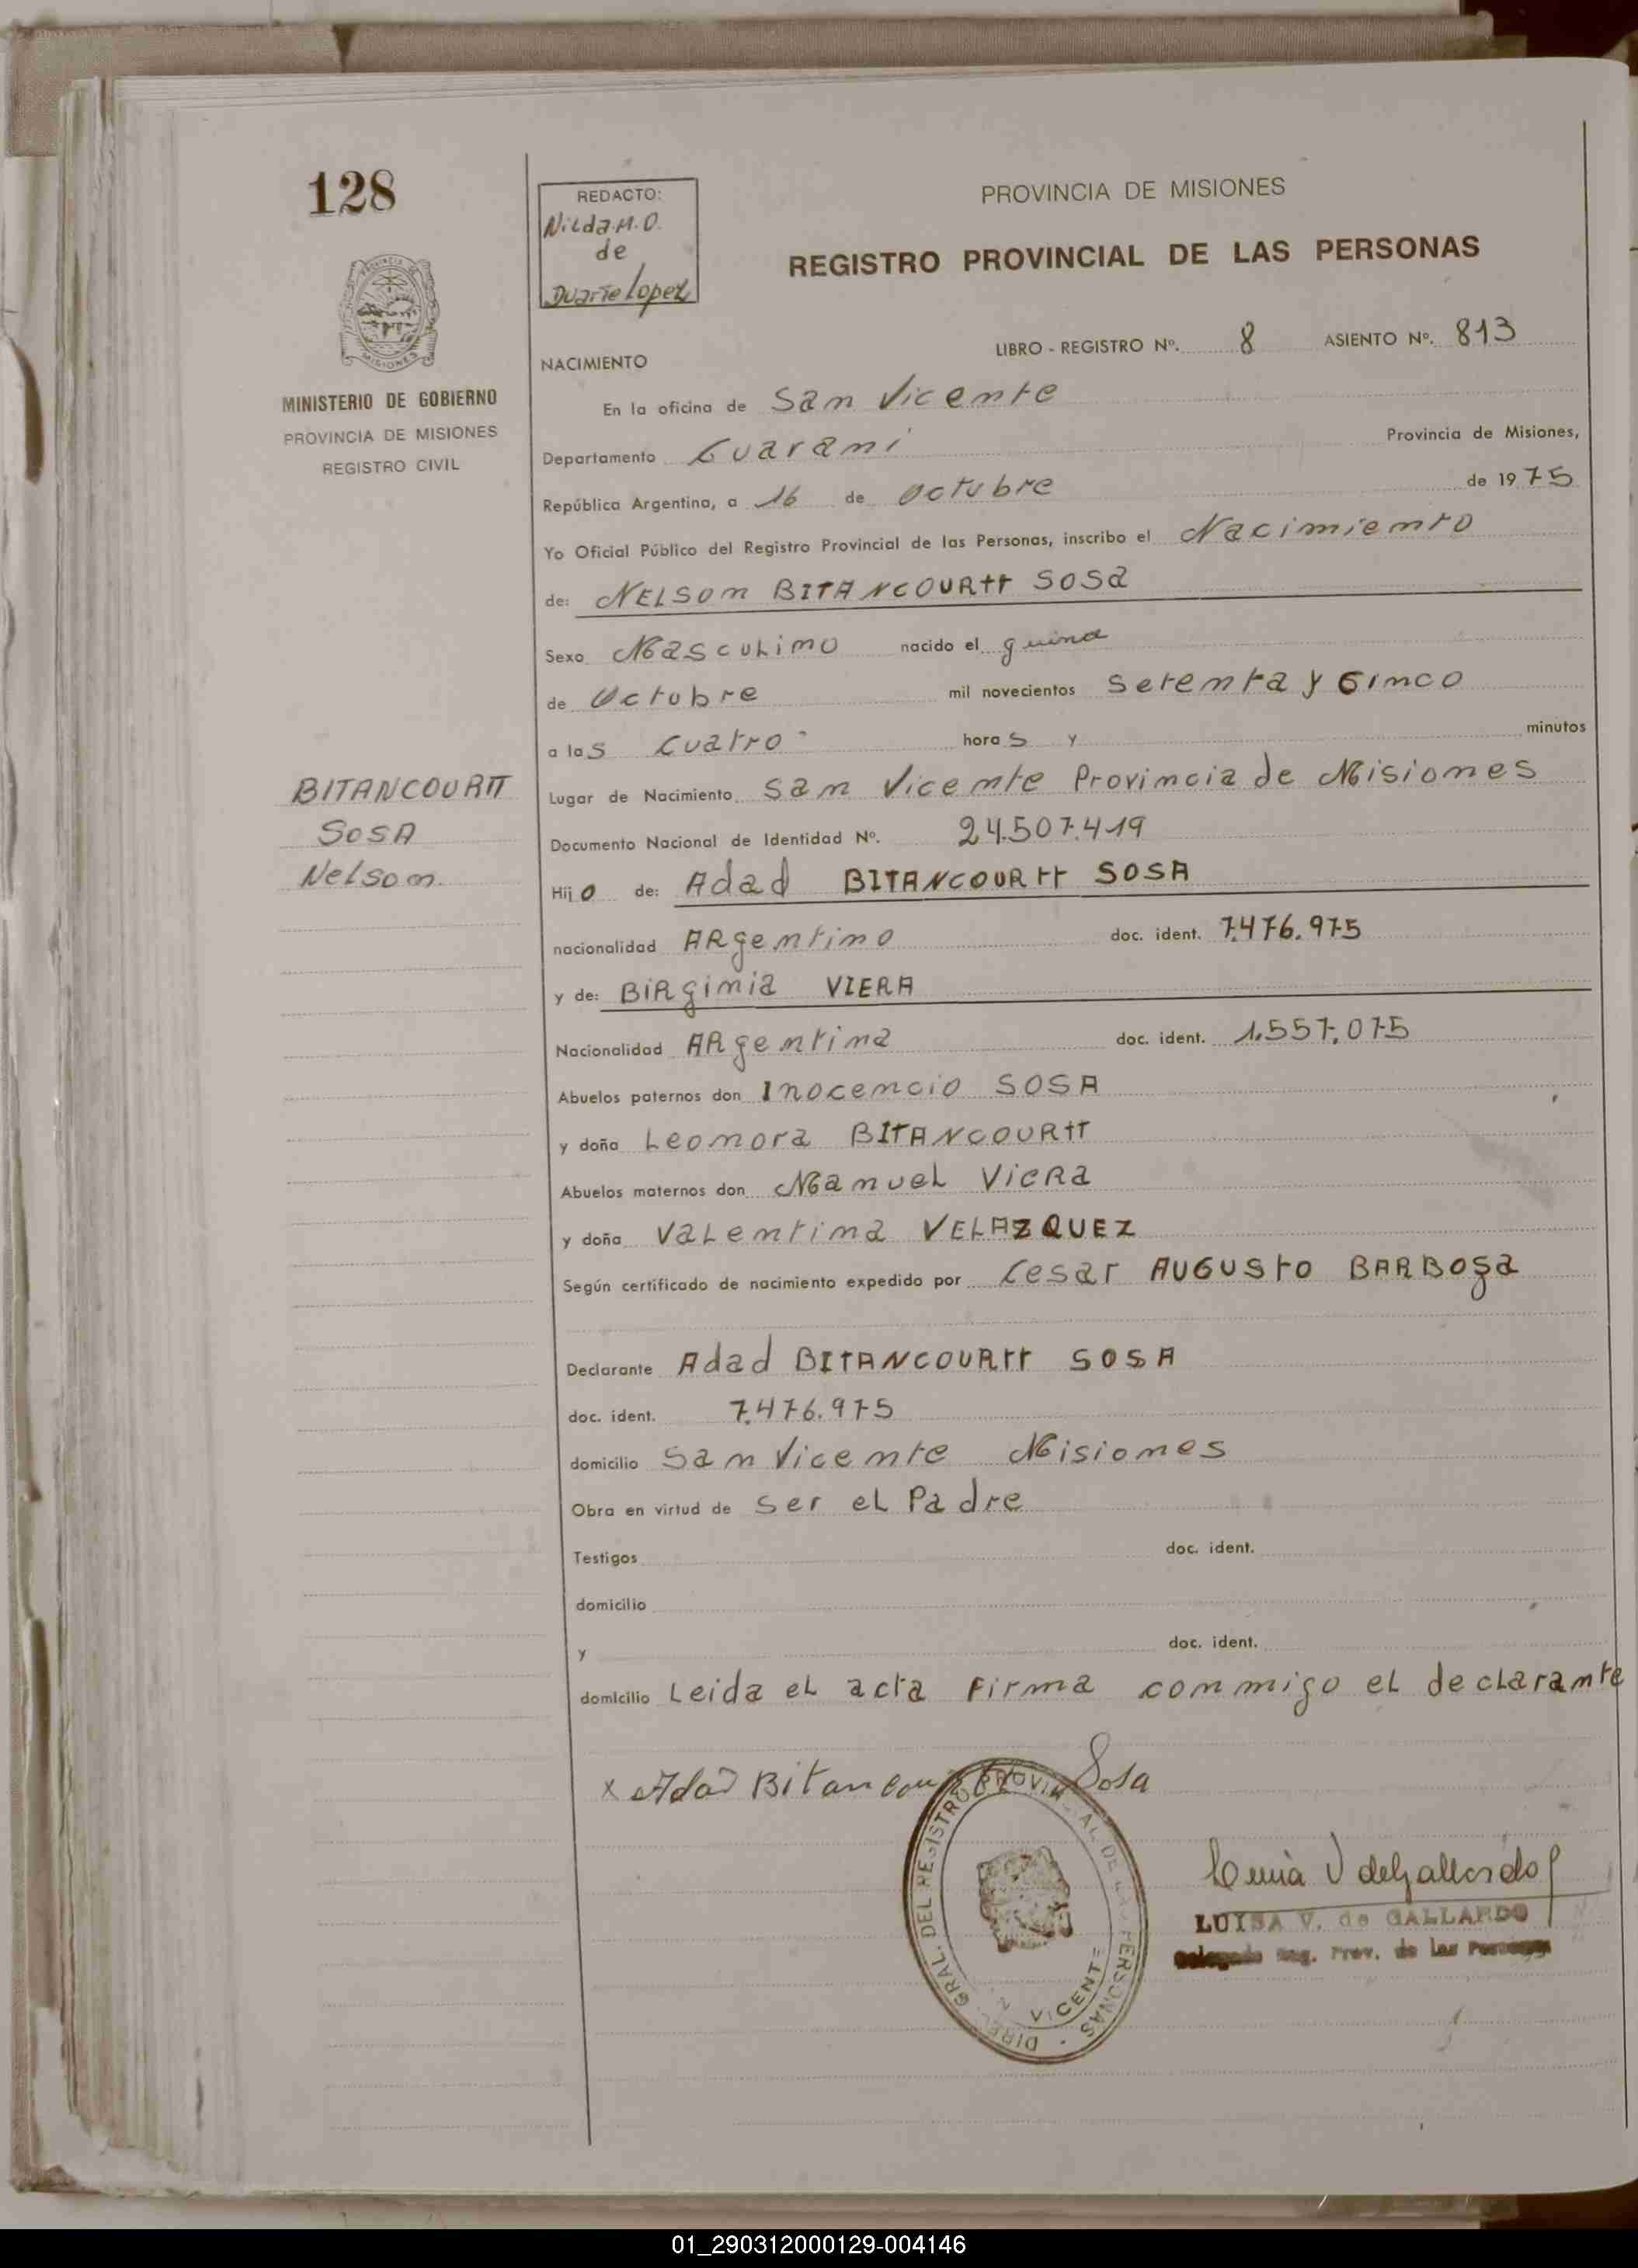 128
REDACTO:
Nilda.M.O.
de
Duarte Lopez
PROVINCIA DE MISIONES
REGISTRO PROVINCIAL DE LAS PERSONAS
MISIONES
MINISTERIO DE GOBIERNO
PROVINCIA DE MISIONES
REGISTRO CIVIL
LIBRO - REGISTRO Nº. 8 ASIENTO Nº. 813
NACIMIENTO
En la oficina de San Vicente
Departamento Guarani Provincia de Misiones,
República Argentina, a 16 de Octubre de 1975
Yo Oficial Público del Registro Provincial de las Personas, inscribo el Nacimiento
de: NELSOM BITANCOURTT SOSA
Sexo Masculino nacido el quince
de Octubre mil novecientos Setenta y Cinco
a las Cuatro horas y minutos
BITANCOURTT
SOSA
Nelsom
Lugar de Nacimiento San Vicente Provincia de Misiones
Documento Nacional de Identidad Nº. 24.507.419
Hijo de: Adad BITANCOURTT SOSA
nacionalidad Argentino doc. ident. 7.476.975
y de: BiRginia VIERA
Nacionalidad Argentina doc. ident. 1.557.075
Abuelos paternos don Inocencio SOSA
y doña Leonora BITANCOURTT
Abuelos maternos don Manuel VieRa
y doña Valentina VELAZQUEZ
Según certificado de nacimiento expedido por Cesar AUGUSTO BARBOSA
Declarante Adad BITANCOURTT SOSA
doc. ident. 7.476.975
domicilio San Vicente Misiones
Obra en virtud de Ser el Padre
Testigos doc. ident.
domicilio
y doc. ident.
domicilio Leida el acta Firma conmigo el declarante
x Adad Bitancourtt Sosa
DIREC. GRAL. DEL REGISTRO PROVINCIAL DE LAS PERSONAS
VICENTE
LUISA V. de GALLARDO
Reg. Prov. de las Personas
01_290312000129-004146